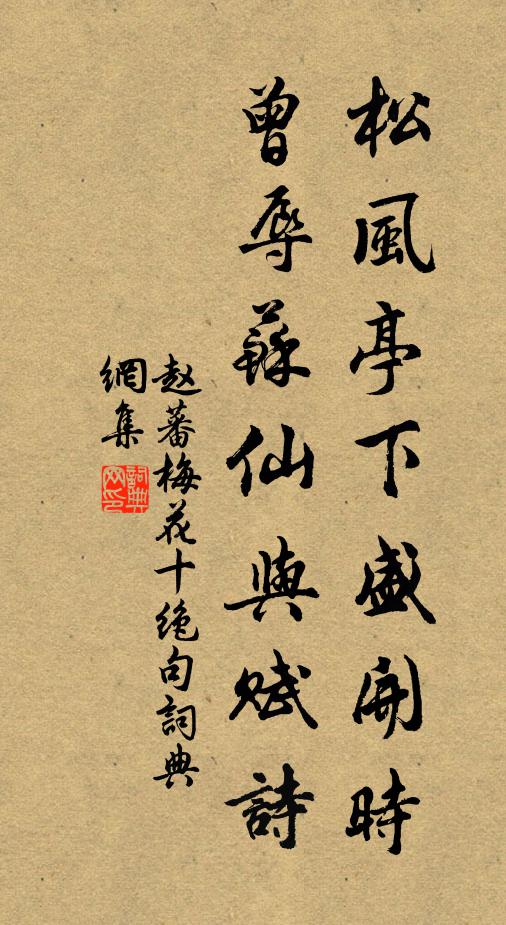 松風亭下盛開時
曾辱蘇仙與賦詩
赵蕃梅花十絶句詞典
網集
詞典
网印